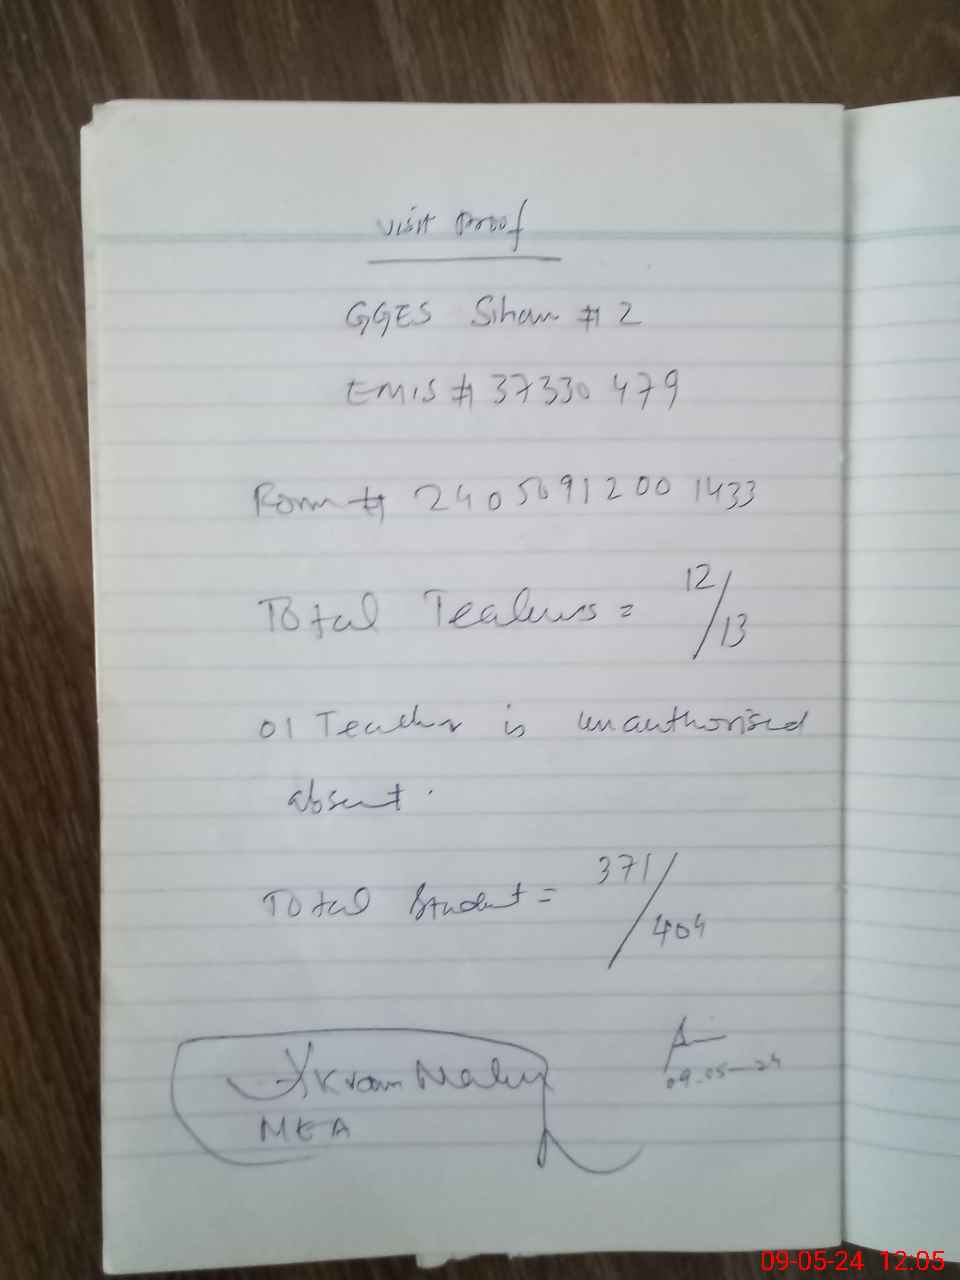 Visit Proof
GGES Sihan # 2
EMIS # 37330479
Form # 2405091200 1433
Total Teachers = 12/13
01 Teacher is unauthorised
absent.
Total Student = 371/404
Ikram
MEA
09-05-24
09-05-24 12:05